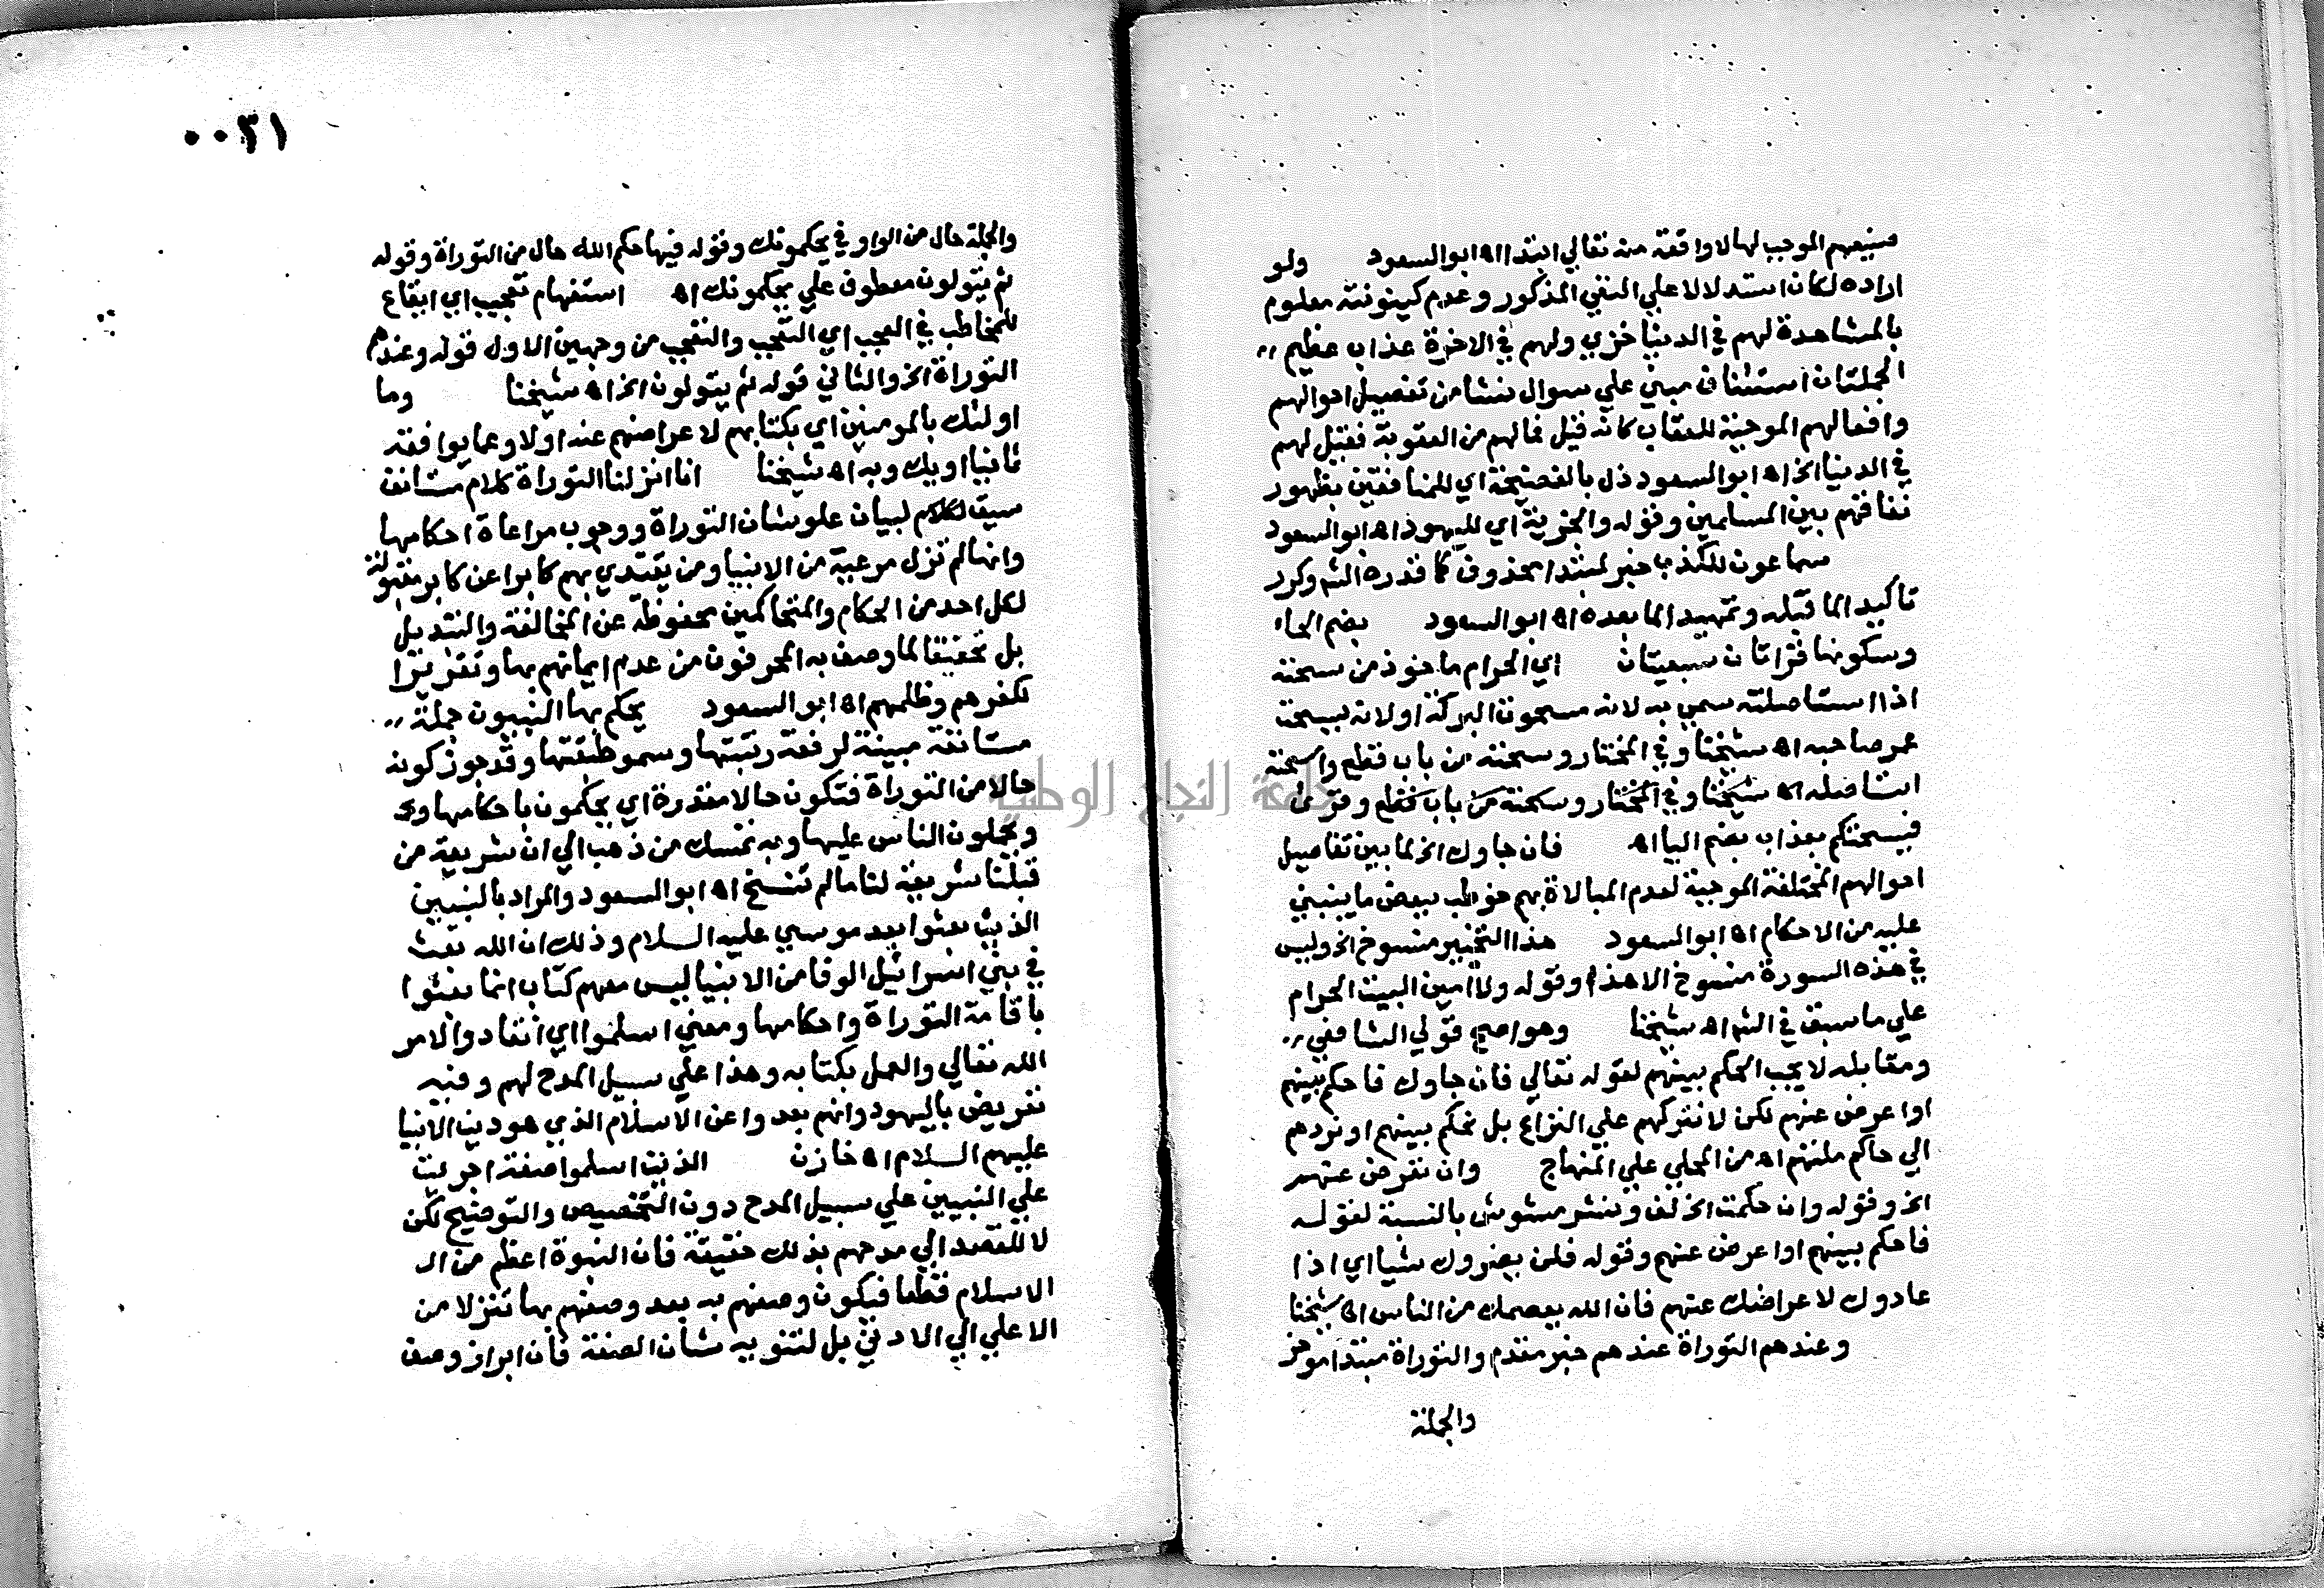 صنيعهم الموجب لها لا واقعة منه تعالي ابتدا اه ابو السعود ولو
اراده لكان استدلالا علي النفي المذكور وعدم كينونته معلوم
بالمشاهدة لهم في الدنيا خزي ولهم في الاخرة عذاب عظيم ,,
الجملتان استئناف مبني علي سوال نشا من تفصيل احوالهم
وافعالهم الموجبة للعقاب كانه قيل فمالهم من العقوبة فقيل لهم
في الدنيا الخ اه ابو السعود ذل بالفضيحة اي للمنافقين بظهور
نفاقهم بين المسلمين وقوله والجزية اي لليهود اه ابو السعود
سماعون للكذب خبر لمبتدا محذوف كما قدره الشم وكرر
تاكيد الما قبله وتمهيد الما بعده اه ابو السعود بضم الحاء
وسكونها قراتان سبعيتان اي الحرام ماخوذ من سحته
اذا استاصلته سمي به لانه مسحوت البركة او لانه يسحت
عمر صاحبه اه شيخنا وفي المختار وسحته من باب قطع واسحته
استاصله اه شيخنا وفي المختار وسحته من باب قطع وقرئ
فيسحتكم بعذاب بضم اليا اه فان جاوك الخ لما بين تفاصيل
احوالهم المختلفة الموجبة لعدم المبالاة بهم خوطب ببعض ما ينبني
عليه من الاحكام اه ابو السعود هذا التخيير منسوخ الخ وليس
في هذه السورة منسوخ الا هذا وقوله ولا امين البيت الحرام
علي ما سبق في الشم اه شيخنا وهو اصح قولي الشافعي ,,
ومقابله لا يجب الحكم بينهم لقوله تعالي فان جاوك فاحكم بينهم
او اعرض عنهم لكن لا نتركهم علي النزاع بل نحكم بينهم او نردهم
الي حاكم ملتهم اه من المحلي علي المنهاج وان تعرض عنهم
الخ وقوله وان حكمت الخ لف ونشر مشوش بالنسبة لقوله
فاحكم بينهم او اعرض عنهم وقوله فلن يضروك شيا اي اذا
عادوك لاعراضك عنهم فان الله يعصمك من الناس اه شيخنا
وعندهم التوراة عندهم خبر مقدم والتوراة مبتدا موخر
والجملة
٠٠٣١
والجملة حال من الواو في يحكمونك وقوله فيها حكم الله حال من التوراة وقوله
ثم يتولون معطوف علي يحكمونك اه استفهام تعجيب اي ايقاع
للمخاطب في العجب اي التعجب والتعجب من وجهين الاول قوله وعندهم
التوراة الخ والثاني قوله ثم يتولون الخ اه شيخنا وما
اولئك بالمومنين اي بكتابهم لاعراضهم عنه اولا وعما يوافقه
ثانيا او بك وبه اه شيخنا انا انزلنا التوراة كلام مستانف
سيق لكلام لبيان علو شان التوراة ووجوب مراعاة احكامها
وانها لم تزل مرعية من الانبيا ومن يقتدي بهم كابرا عن كابر مقبولة
لكل احد من الحكام والمتحاكمين محفوظة عن المخالفة والتبديل
بل تحقيقا لما وصف به المحرفون من عدم ايمانهم بها وتقريرا
لكفرهم وظلمهم اه ابو السعود يحكم بها النبيون جملة ,,
مستانفة مبينة لرفعة رتبتها وسمو طبقتها وقد جوز كونه
حالا من التوراة فتكون حالا مقدرة اي يحكمون باحكامها وي
ويحملون الناس عليها وبه تمسك من ذهب الي ان شريعة من
قبلنا شريعة لنا ما لم تنسخ اه ابو السعود والمراد بالنبيين
الذين بعثوا بعد موسي عليه السلام وذلك ان الله بعث
في بني اسرائيل الوفا من الانبيا ليس معهم كتاب انما بعثوا
باقامة التوراة واحكامها ومعني اسلموا اي انقادوا لامر
الله تعالي والعمل بكتابه وهذا علي سبيل المدح لهم وفيه
تعريض باليهود وانهم بعدوا عن الاسلام الذي هو دين الانبيا
عليهم السلام اه خازن الذين اسلموا صفة اجريت
علي النبيين علي سبيل المدح دون التخصيص والتوضيح لكن
لا للقصد الي مدحهم بذلك حقيقة فان النبوة اعظم من ال
الاسلام قطعا فيكون وصفهم به بعد وصفهم بها تنزلا من
الاعلي الي الادني بل لتنويه شان الصفة فان ابراز وصف
جامعة النجاح الوطنية